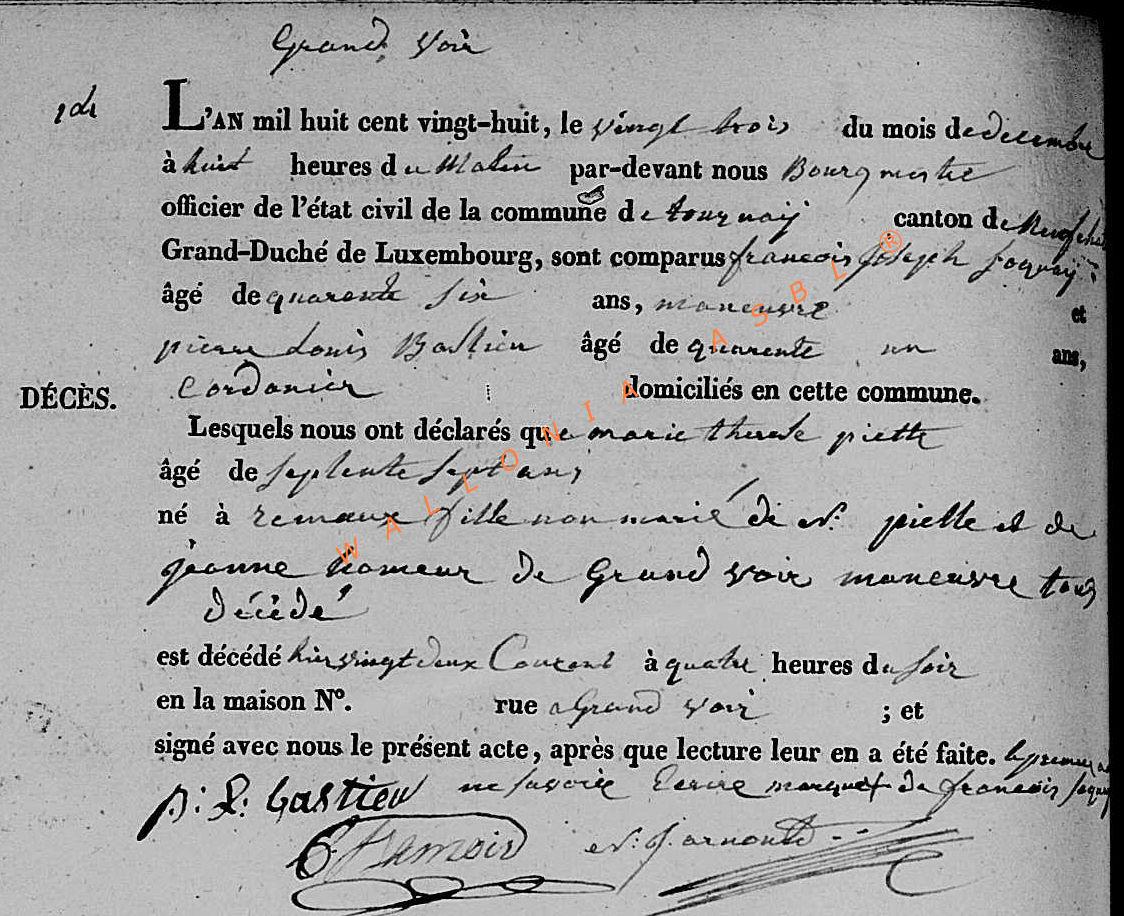 Grand Voir
L'AN mil huit cent vingt-huit, le vingt trois du mois de decembre
à huit heures du Matin par-devant nous Bourgmestre
officier de l'état civil de la commune de tournay canton de
Grand-Duché de Luxembourg, sont comparus francois Joseph Jaquay
âgé de quarente six ans, maneuvre et
pierre Louis Bastien âgé de quarente un ans,
DÉCÈS. Cordonier domiciliés en cette commune.
Lesquels nous ont déclarés que marie therese piette
âgé de septente sept ans
né à remaux fille non marié de N. piette et de
jeanne hameur de Grand voir maneuvre tous
décédé
est décédé hier vingt deux Courant à quatre heures du soir
en la maison N°. rue a Grand voir ; et
signé avec nous le présent acte, après que lecture leur en a été faite. le premier
p: L: bastien ne savoir Ecrire marque + de francois Jaquay
N. J. arnould
WALLONIA ASBL ®